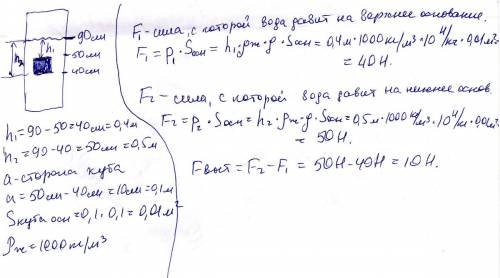 90см
50см
40см
h₁
h₂
h₁ = 90 - 50 = 40см = 0,4м
h₂ = 90 - 40 = 50см = 0,5м
a - сторона куба
a = 50см - 40см = 10см = 0,1м
Sкуба осн = 0,1 · 0,1 = 0,01м²
ρж = 1000 кг/м³
F₁ - сила, с которой вода давит на верхнее основание.
F₁ = p₁ · Sосн = h₁ · ρж · g · Sосн = 0,4м · 1000кг/м³ · 10 Н/кг · 0,01м² =
= 40Н.
F₂ - сила, с которой вода давит на нижнее основ.
F₂ = p₂ · Sосн = h₂ · ρж · g · Sосн = 0,5м · 1000кг/м³ · 10 Н/кг · 0,01м² =
= 50Н.
Fвыт = F₂ - F₁ = 50Н - 40Н = 10Н.